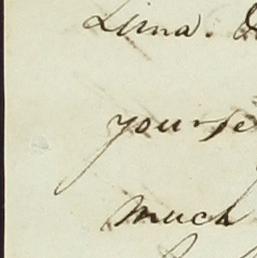 Lima.
yourse
much